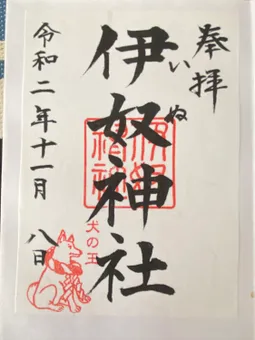 奉拝
伊奴神社
いぬ
犬の王
令和二年十一月八日